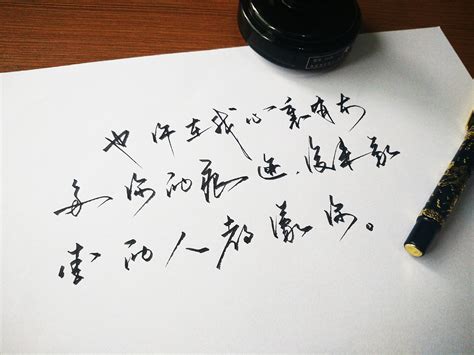 也许在我心裏有太
多你的痕迹,後来我
爱的人都像你。